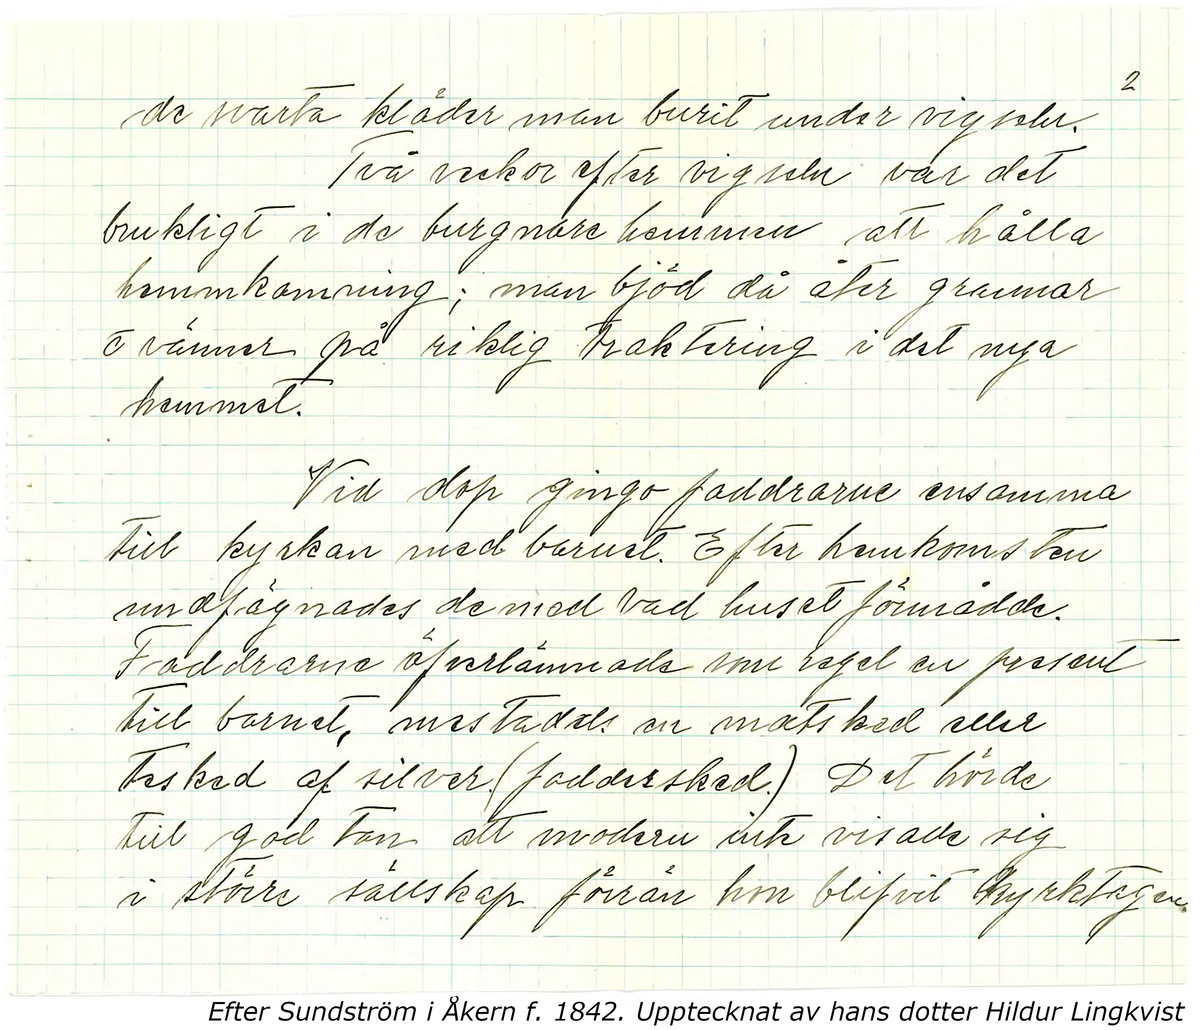 2
de svarta kläder man burit under vigseln.
Två veckor efter vigseln var det
brukligt i de burgnare hemmen att hålla
hemmkomning; man bjöd då åter grannar
o vänner på riklig traktering i det nya
hemmet.
Vid dop gingo faddrarne ensamma
till kyrkan med barnet. Efter hemkomsten
undfägnades de med vad huset förmådde.
Faddrarne öfverlämnade som regel en present
till barnet, mestadels en matsked eller
tesked af silver. (faddersked.) Det hörde
till god ton att modern inte visade sig
i större sällskap förrän hon blifvit kyrktagen.
Efter Sundström i Åkern f. 1842. Upptecknat av hans dotter Hildur Lingkvist